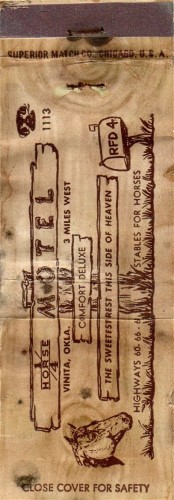 SUPERIOR MATCH CO., CHICAGO, U.S.A.
1113
RFD 4
MOTEL
1/4 HORSE
3 MILES WEST
VINITA, OKLA.
COMFORT DELUXE
THE SWEETEST REST THIS SIDE OF HEAVEN
STABLES FOR HORSES
HIGHWAYS 60. 66.
CLOSE COVER FOR SAFETY